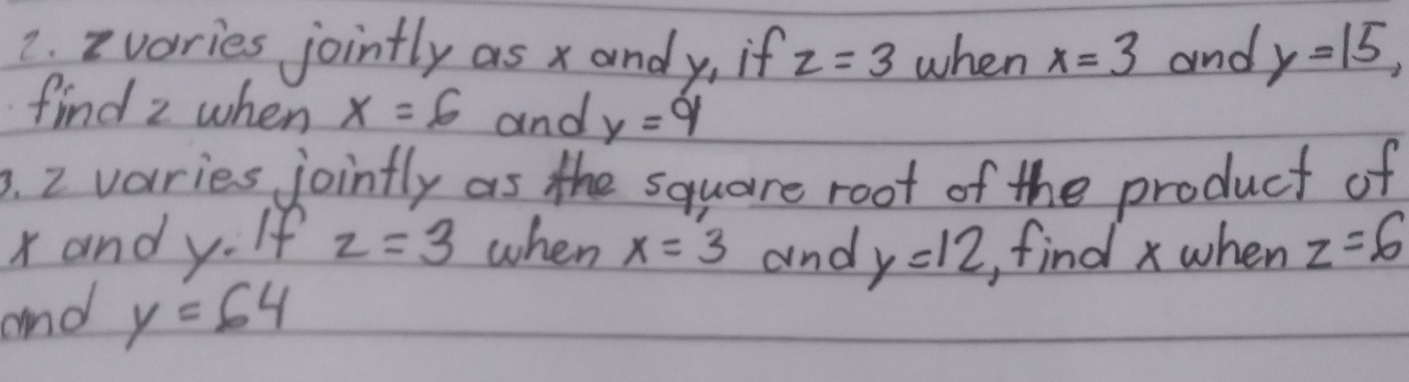 2. z varies jointly as x and y, if z = 3 when x = 3 and y = 15,
find z when x = 6 and y = 9
3. z varies jointly as the square root of the product of
x and y. If z = 3 when x = 3 and y = 12, find x when z = 6
and y = 64